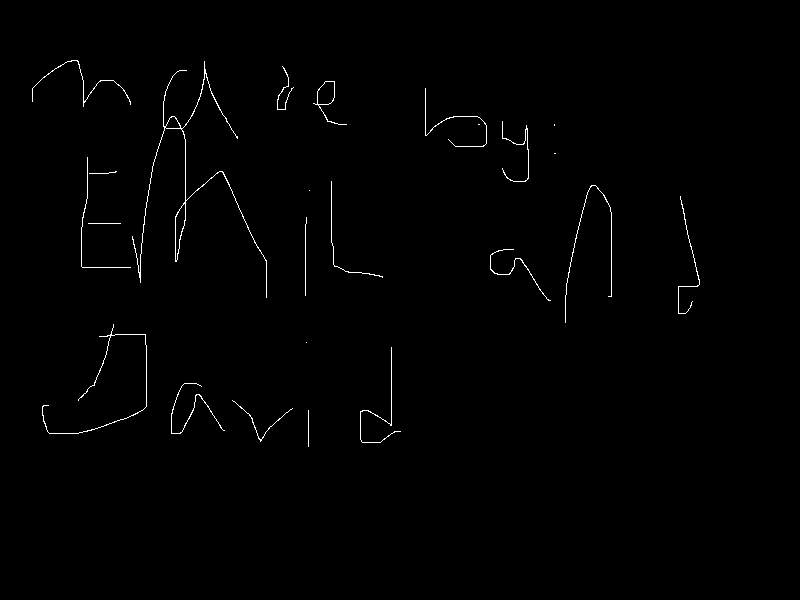 made by:
Emil and
David